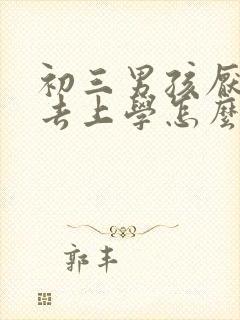 初三男孩厭
去上學怎麼
郭丰